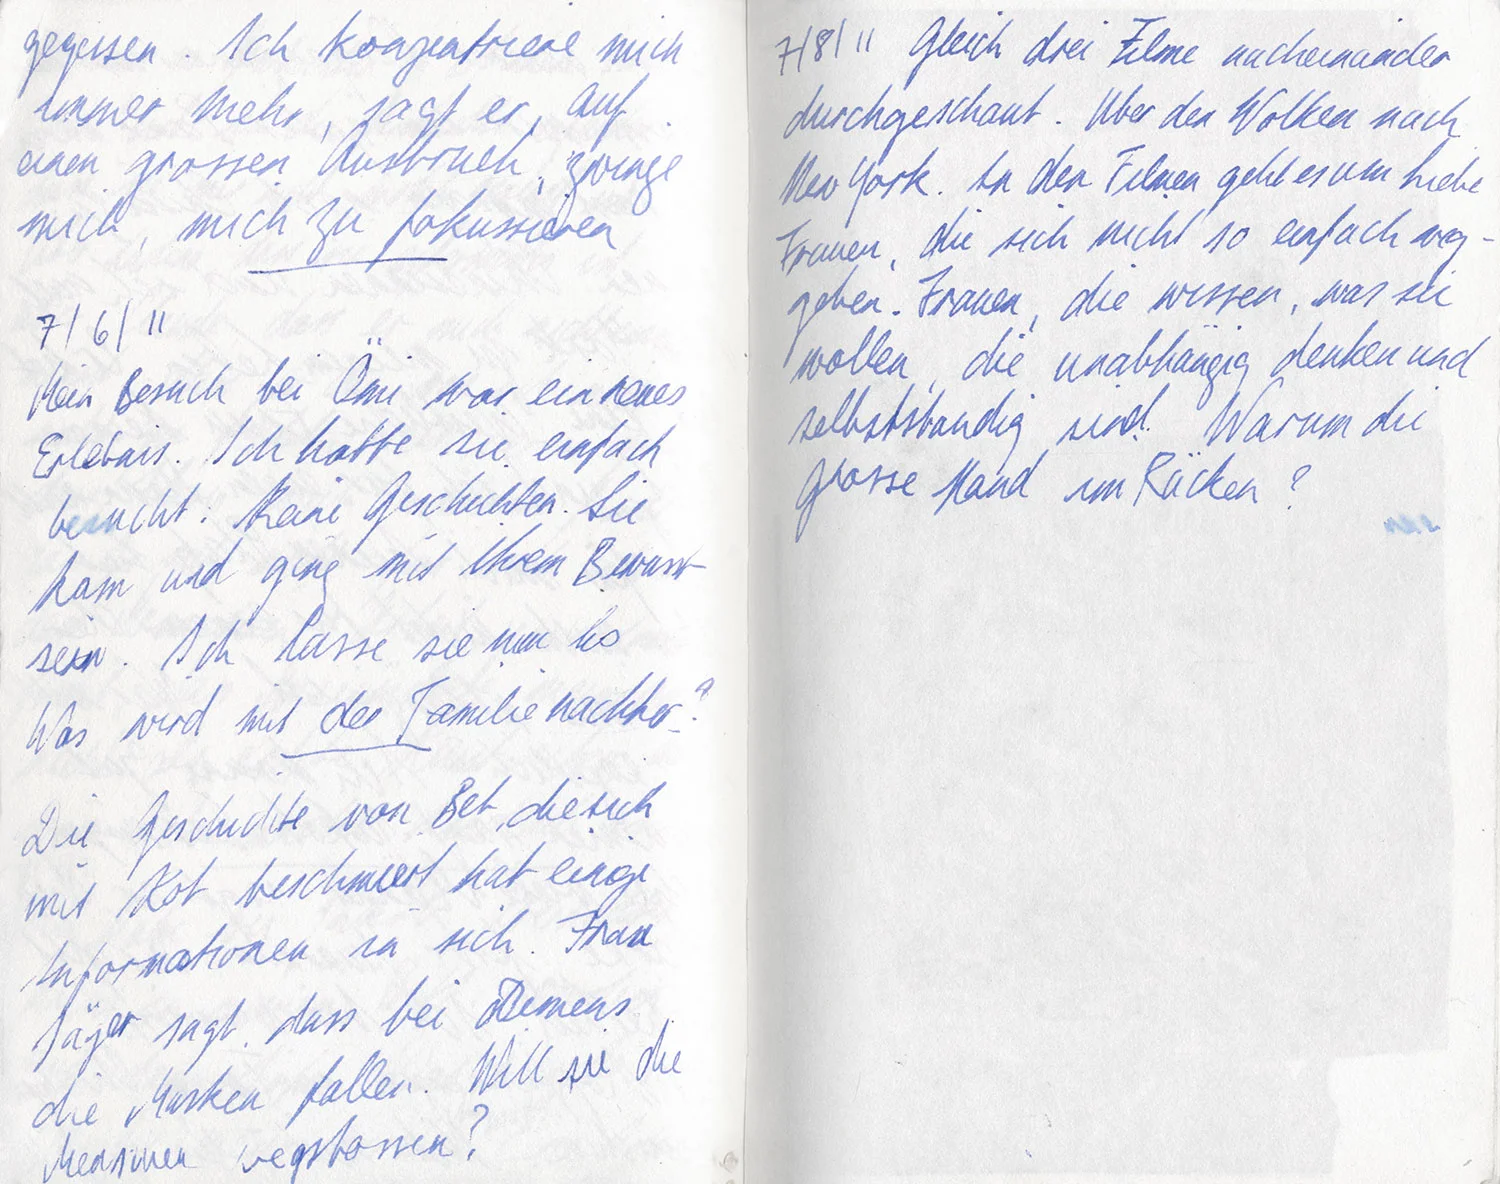 gegessen. Ich konzentriere mich
immer mehr, sagt er, auf
einen grossen Ausbruch, zwinge
mich, mich zu fokussieren
7/6/11
Mein Besuch bei Omi war ein neues
Erlebnis. Ich hatte sie einfach
besucht. Keine Geschichten. Sie
kam und ging mit Ihrem Bewusst
sein. Ich lasse sie nun los
Was wird mit der Familie nachher?
Die Geschichte von Bet, die sich
mit Kot beschmiert hat einige
Informationen in sich. Frau
Jäger sagt, dass bei Demens
die Masken fallen. Will sie die
Menschen wegstossen?
7/8/11 Gleich drei Filme nacheinander
durchgeschaut. Über den Wolken nach
New York. In den Filmen geht es um Liebe
Frauen, die sich nicht so einfach weg-
geben. Frauen, die wissen, was sie
wollen, die unabhängig denken und
selbstständig sind. Warum die
grosse Hand im Rücken?